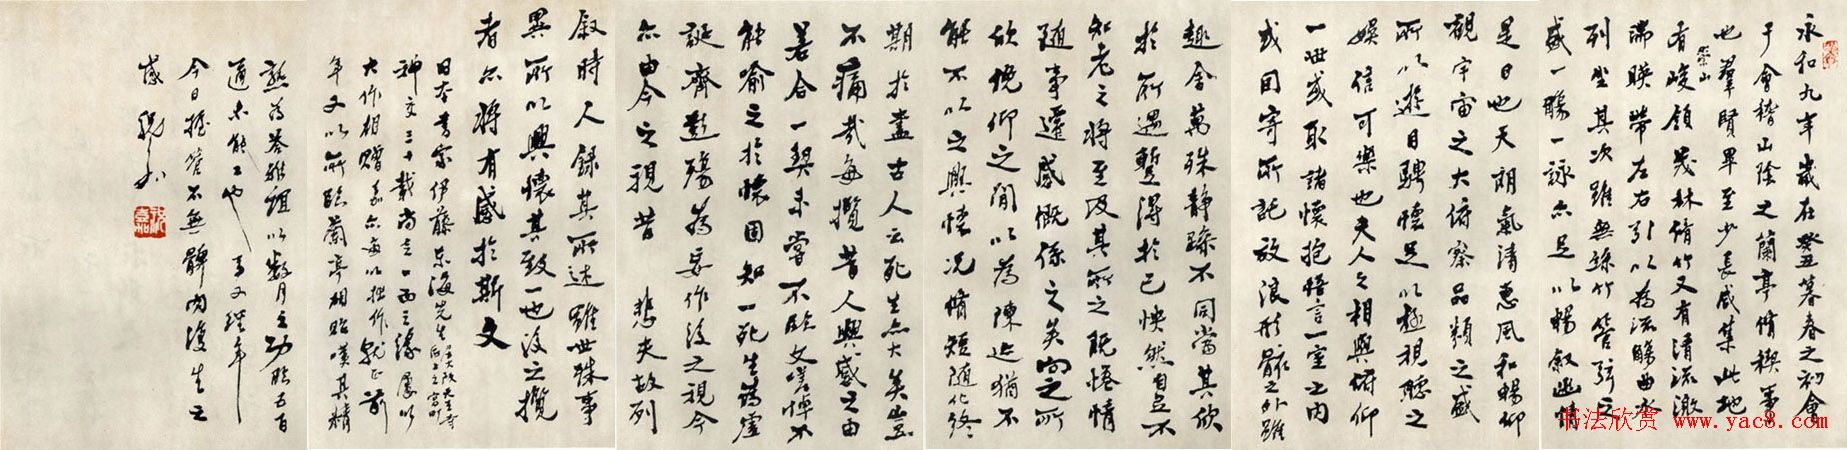 永和九年歲在癸丑暮春之初會
于會稽山陰之蘭亭脩禊事
也羣賢畢至少長咸集此地
崇山
有峻領茂林脩竹又有清流激
湍暎帶左右引以為流觴曲水
列坐其次雖無絲竹管弦之
盛一觴一詠亦足以暢敘幽情
是日也天朗氣清惠風和暢仰
觀宇宙之大俯察品類之盛
所以遊目騁懷足以極視聽之
娛信可樂也夫人之相與俯仰
一世或取諸懷抱悟言一室之內
或因寄所託放浪形骸之外雖
趣舍萬殊靜躁不同當其欣
於所遇暫得於己快然自足不
知老之將至及其所之既惓情
隨事遷感慨係之矣向之所
欣俛仰之間以為陳迹猶不
能不以之興懷況脩短隨化終
期於盡古人云死生亦大矣豈
不痛哉每攬昔人興感之由
若合一契未嘗不臨文嗟悼不
能喻之於懷固知一死生為虛
誕齊彭殤為妄作後之視今
亦由今之視昔 悲夫故列
敘時人錄其所述雖世殊事
異所以興懷其致一也後之攬
者亦將有感於斯文
日本書家伊藤東海先生
神交三十載尚乏一面之緣屢以
大作相贈余亦每以拙作就正前
年又以所臨蘭亭相貽嘆其精
熟為答雅誼以數月之功臨五百
過未能工也
今日握管不無髀肉復生之
感
书法欣赏 www.yac8.com